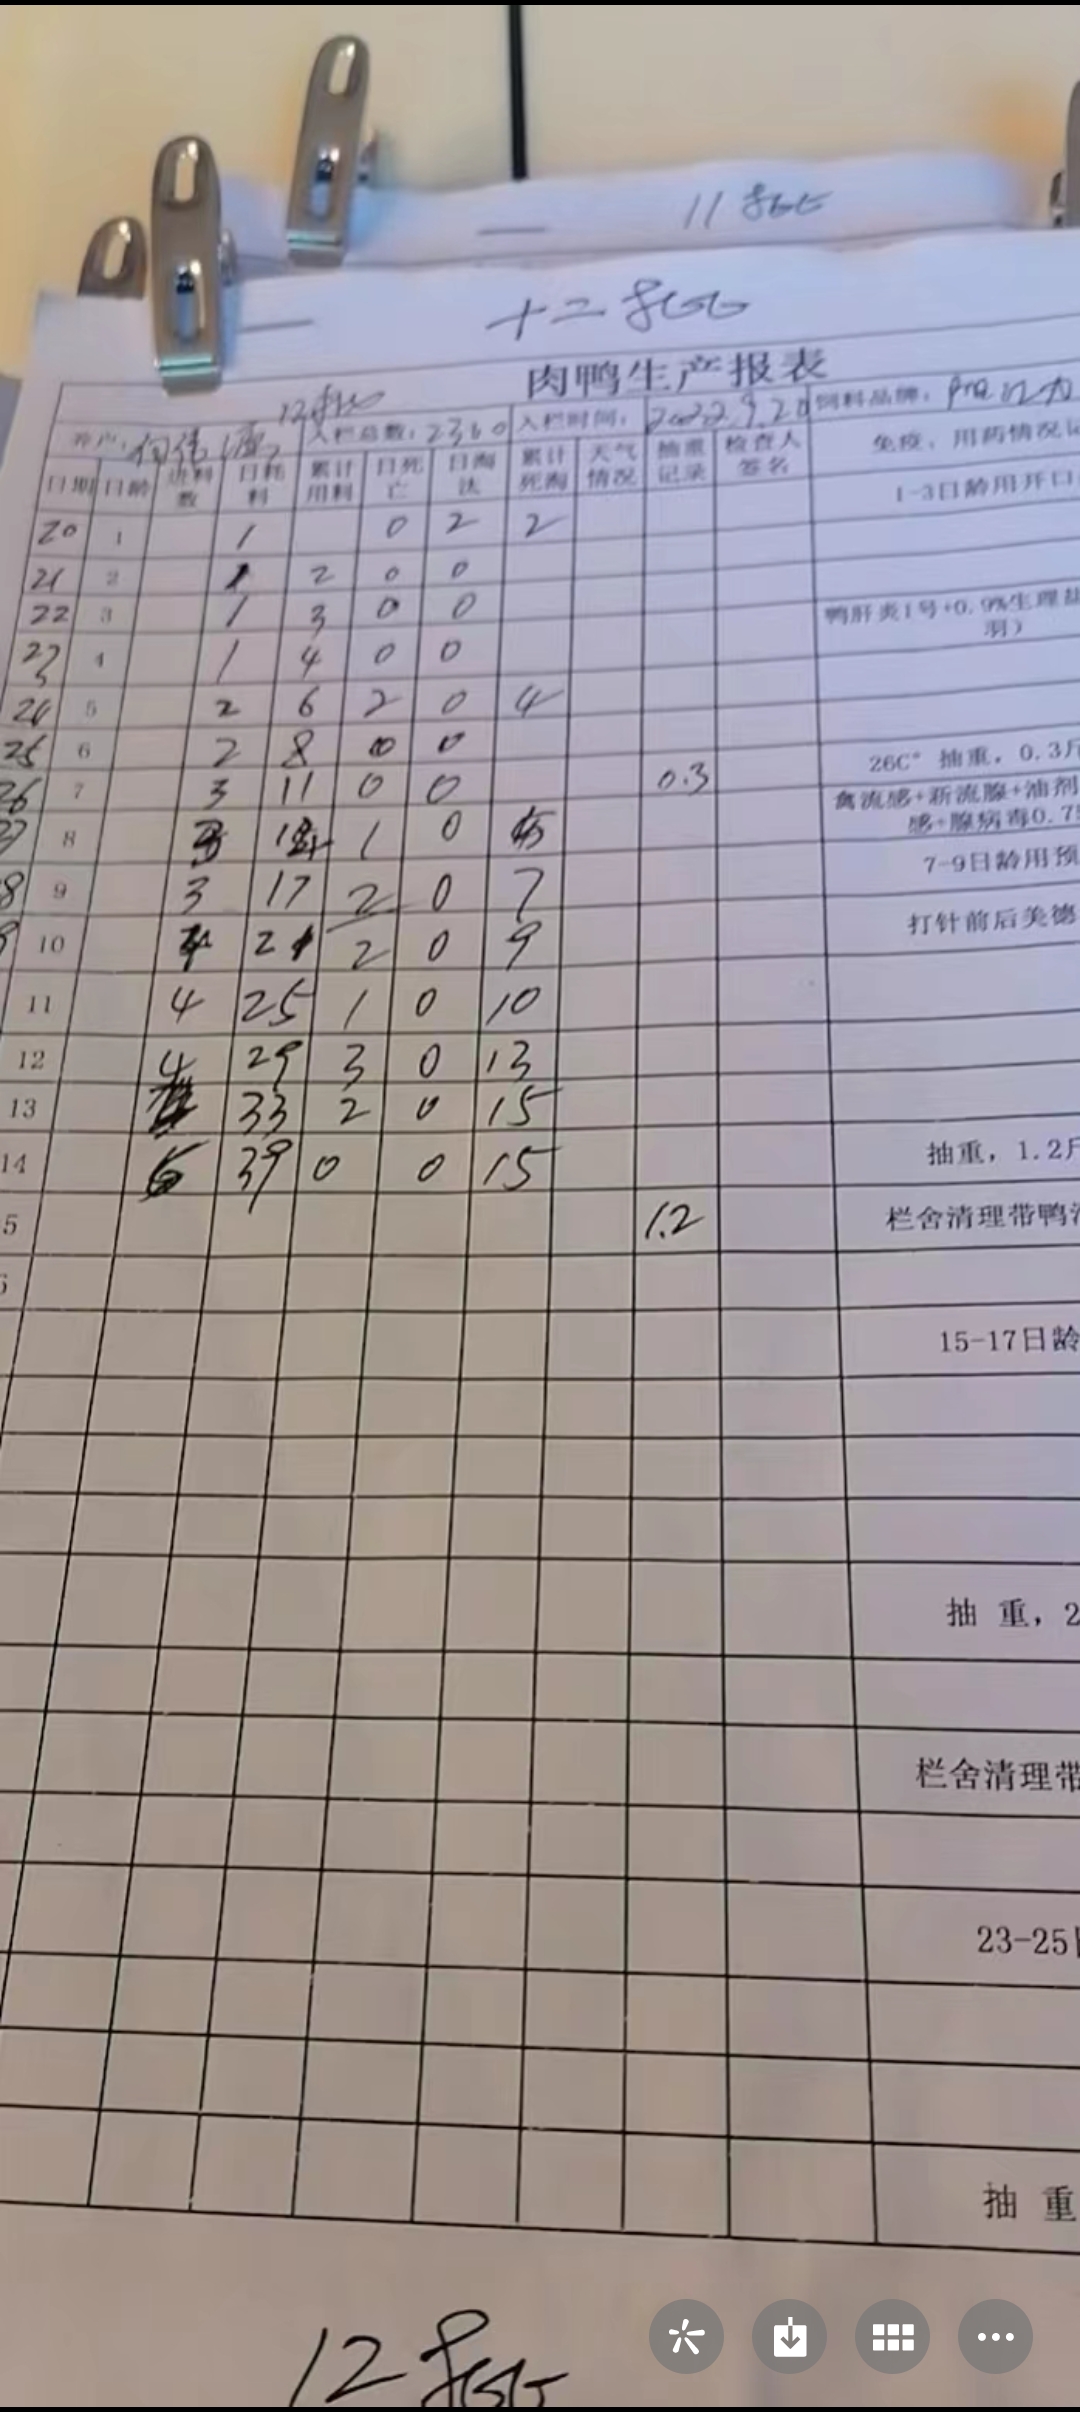 11
十二
肉鸭生产报表
入栏总数：2360 入栏时间：2022.9.20 饲料品牌：
日期 日龄 进料数 日耗料 累计用料 日死亡 日淘汰 累计死淘 天气情况 抽重记录 检查人签名 免疫、用药情况
20 1 1 0 2 2 1-3日龄用开口
21 2 1 2 0 0
22 3 1 3 0 0 鸭肝炎1号+0.9%生理盐
羽）
23 4 1 4 0 0
24 5 2 6 2 0 4
25 6 2 8 0 0 26C° 抽重，0.3斤
26 7 3 11 0 0 0.3 禽流感+新流腺+油剂
8 3 14 1 0 5 感+腺病毒0.7
9 3 17 2 0 7 7-9日龄用预
10 4 21 2 0 9 打针前后美德
11 4 25 1 0 10
12 4 29 3 0 13
13 4 33 2 0 15
14 6 39 0 0 15 抽重，1.2斤
5 1.2 栏舍清理带鸭
15-17日龄
抽 重，2
栏舍清理带
23-25
抽 重
12